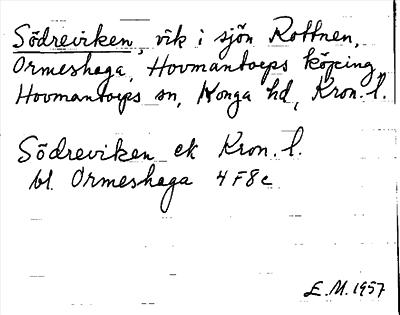 Södreviken, vik i sjön Rottnen,
Ormeshaga, Hovmantorps köping,
Hovmantorps sn, Konga hd, Kron. l.
Södreviken ek Kron. l.
bl. Ormeshaga 4F8c
E.M. 1957